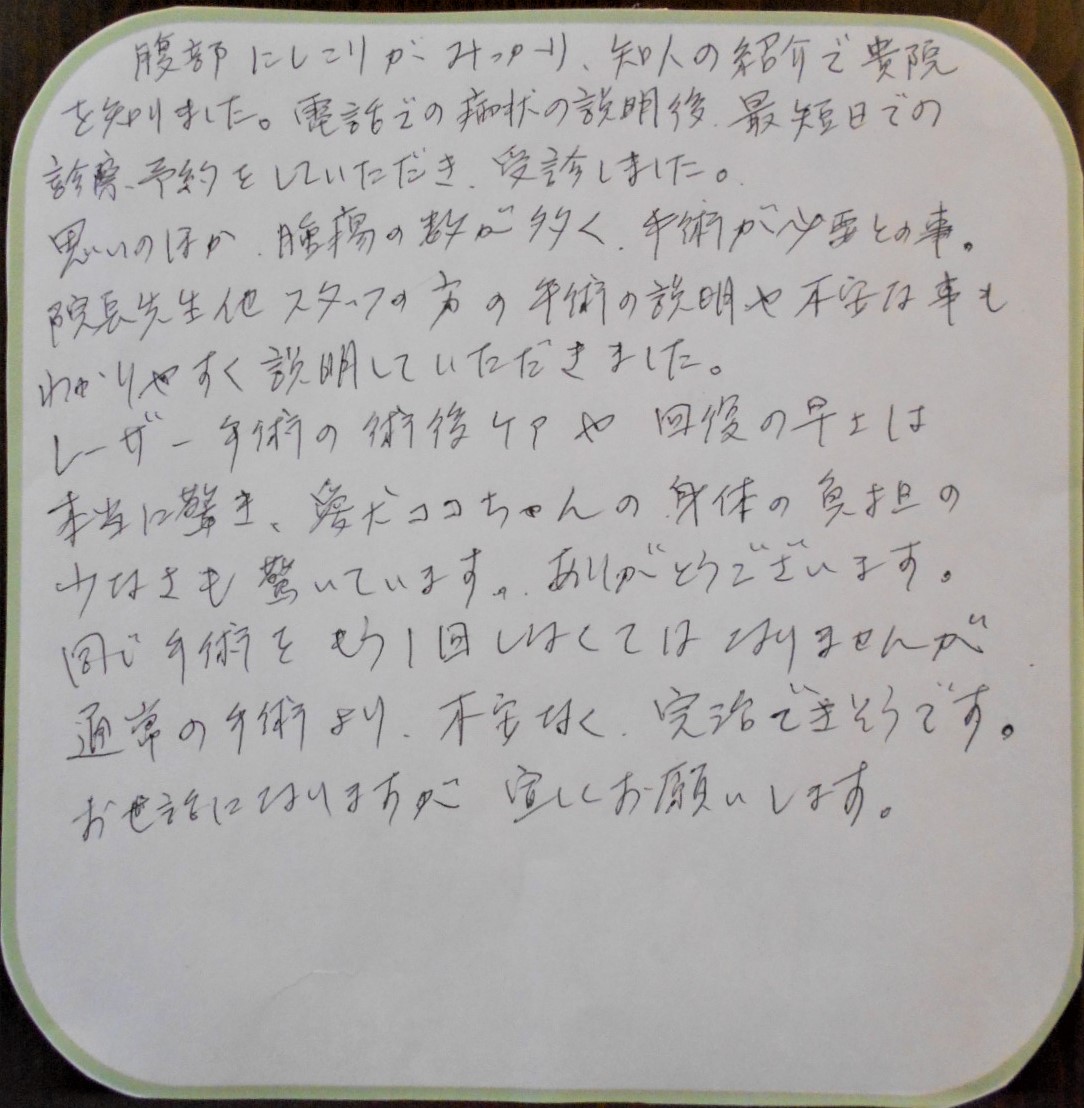 腹部にしこりがみつかり、知人の紹介で貴院
を知りました。電話での病状の説明後、最短日での
診察、予約をしていただき、受診しました。
思いのほか、腫瘍の数が多く、手術が必要との事。
院長先生他スタッフの方の手術の説明や不安な事も
わかりやすく説明していただきました。
レーザー手術の術後ケアや回復の早さは
本当に驚き、愛犬ココちゃんの身体の負担の
少なさも驚いています。ありがとうございます。
同じ手術をもう1回しなくてはなりませんが
通常の手術より、不安なく、完治できそうです。
お世話になりますが宜しくお願いします。